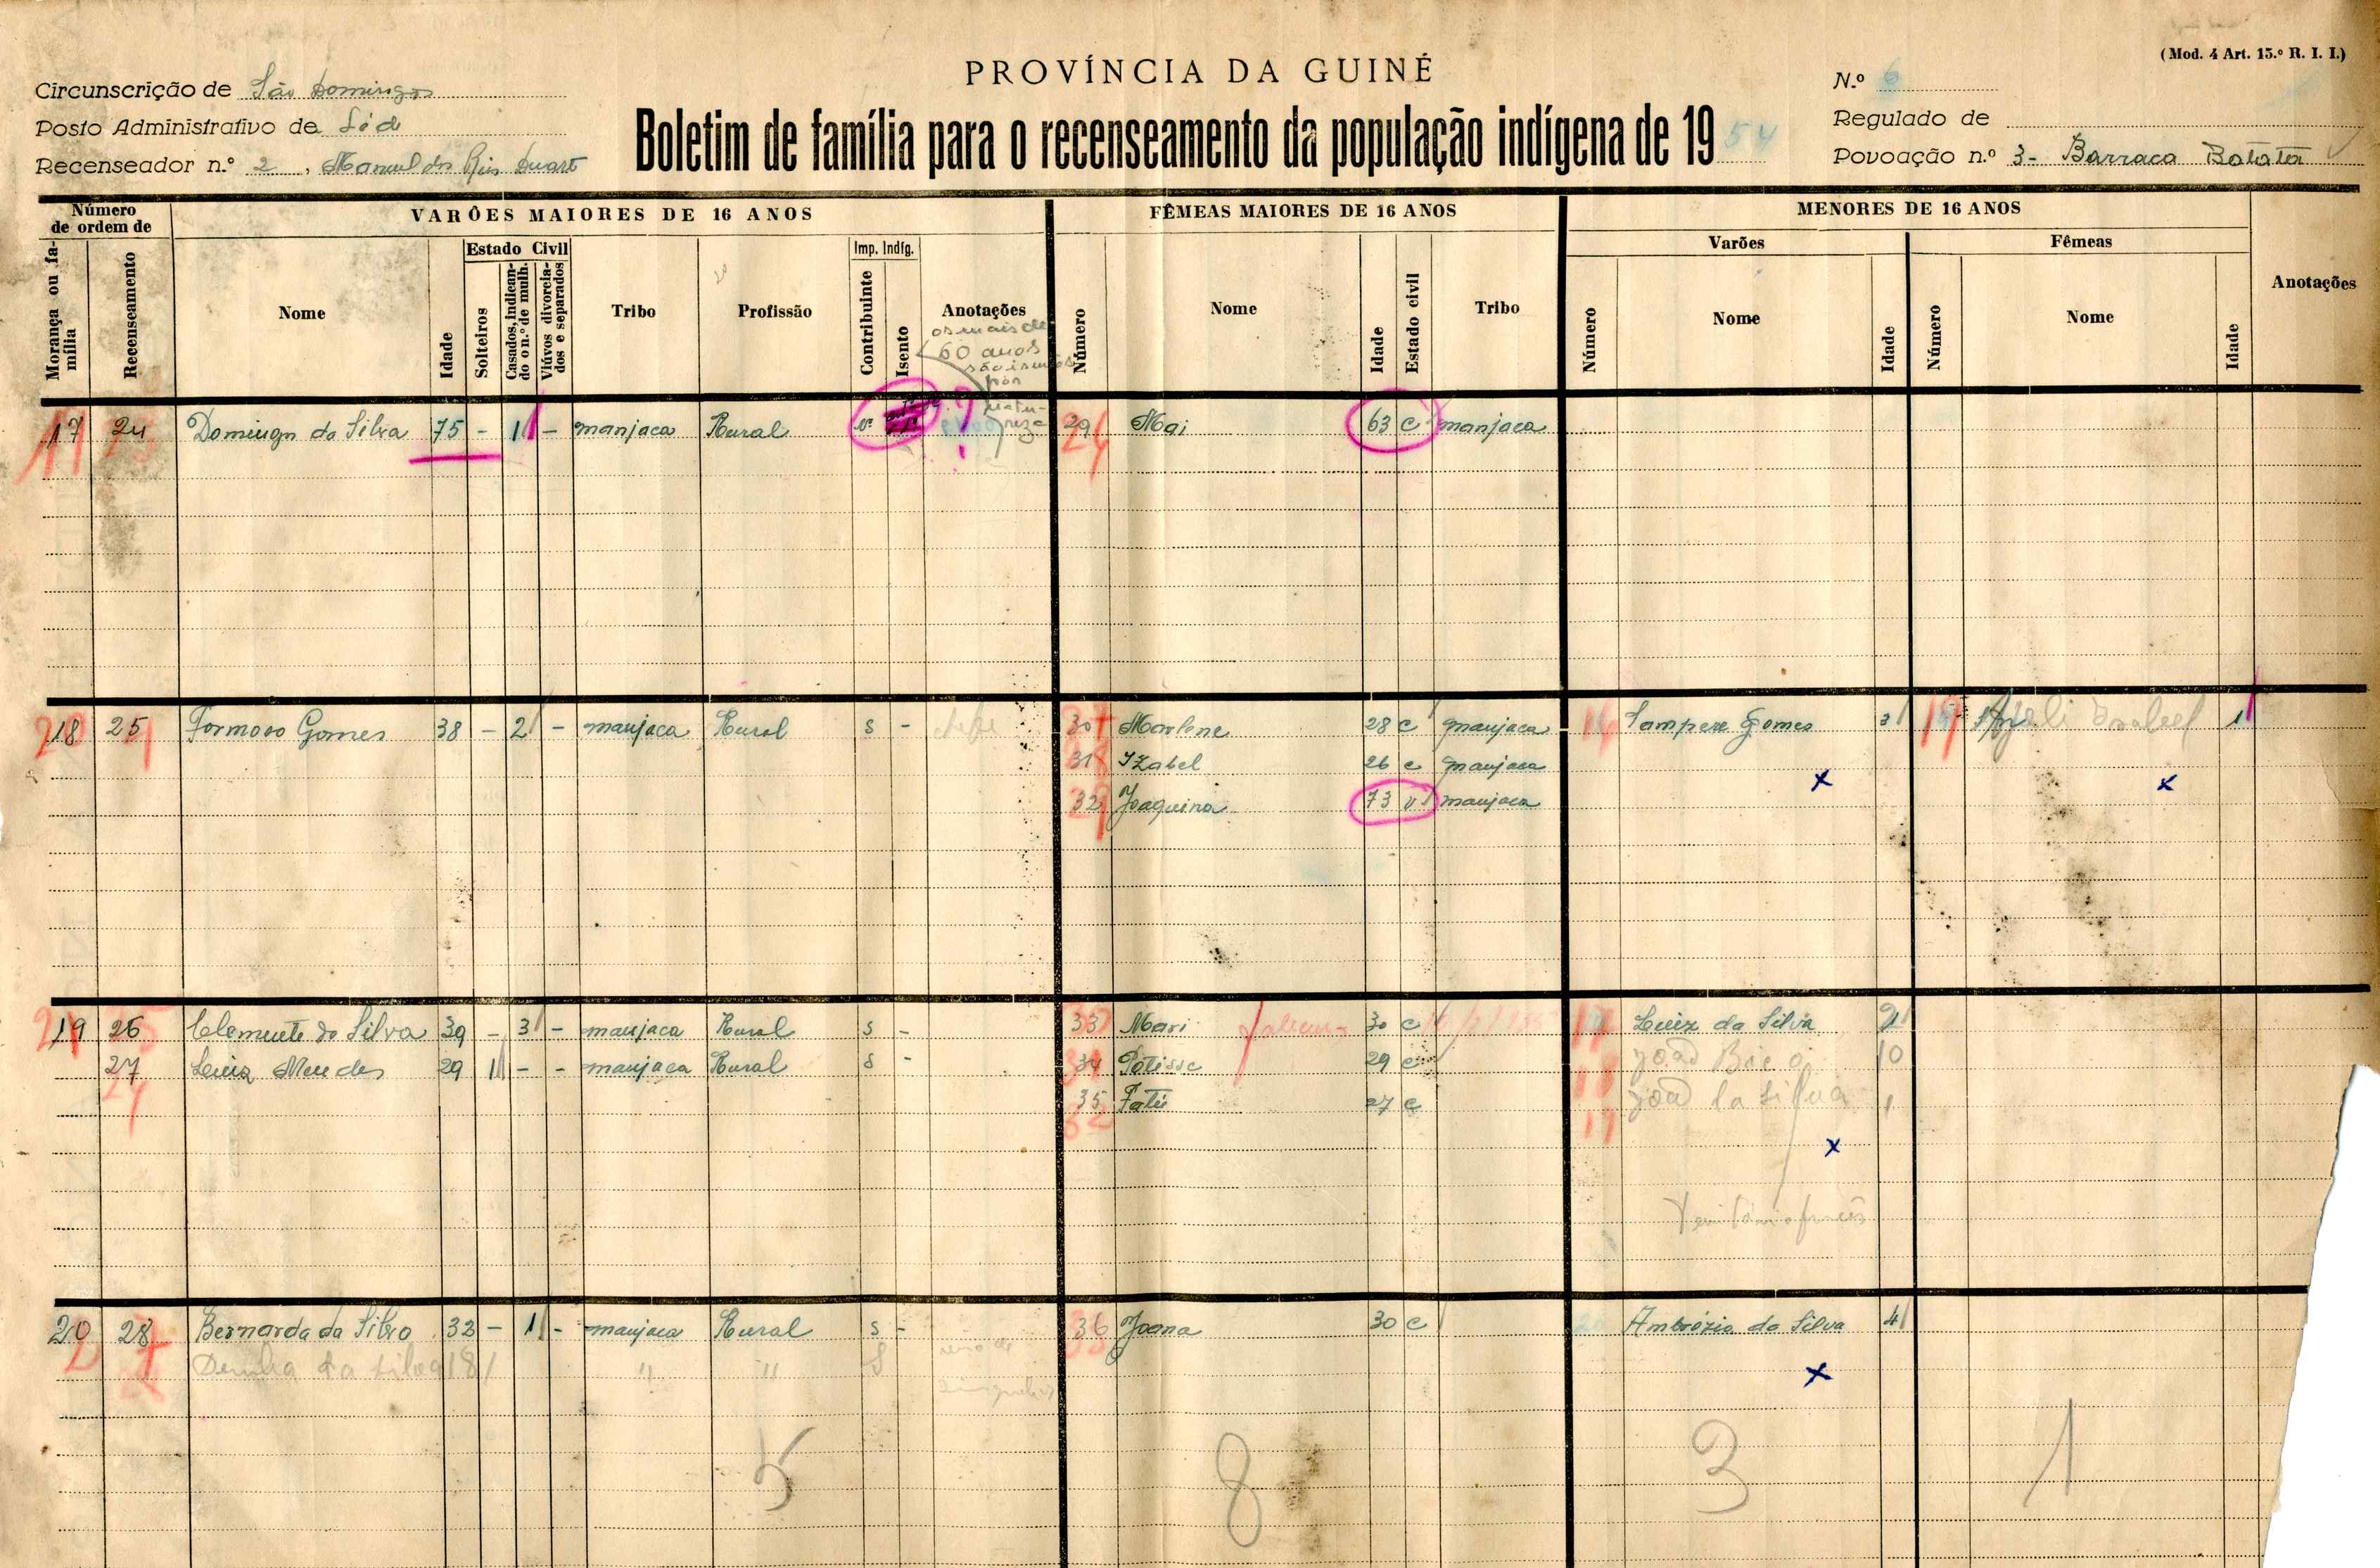 (Mod. 4 Art. 15.º R. I. I.)
PROVÍNCIA DA GUINÉ
Boletim de família para o recenseamento da população indígena de 1954
Circunscrição de São Domingos
Posto Administrativo de Séd
Recenseador n.º 2, Manuel dos Reis Duarte
N.º 6
Regulado de
Povoação n.º 3- Barraca Batata
Número de ordem de
Morança ou família
Recenseamento
VARÕES MAIORES DE 16 ANOS
Nome
Idade
Estado Civil
Solteiros
Casados, indicando o n.º de mulh.
Viúvos divorciados e separados
Tribo
Profissão
Imp. Indíg.
Contribuinte
Isento
Anotações
os mais de
60 anos
são isentos
por
natureza
FÊMEAS MAIORES DE 16 ANOS
Número
Nome
Idade
Estado civil
Tribo
MENORES DE 16 ANOS
Varões
Número
Nome
Idade
Fêmeas
Número
Nome
Idade
Anotações
17 24 Domingos da Silva 75 - 1 - manjaca Rural 29 Mai 63 c manjaca
18 25 Formoso Gomes 38 - 2 - manjaca Rural s - chefe 30 Marlene 28 c manjaca Sampere Gomes 3 Isabel 1
31 Izabel 26 c manjaca
32 Joaquina 73 v manjaca
19 26 Clemente da Silva 39 - 3 - manjaca Rural s - 33 Mari 30 c Luiz da Silva 9
27 Luiz Mendes 29 1 - - manjaca Rural s - 34 Potisse 29 c João 10
35 Fatú 27 c João da Silva 1
20 28 Bernarda da Silva 32 - 1 - manjaca Rural s - 36 Joana 30 c Ambrózio da Silva 4
da Silva 18 " " S
5 8 3 1